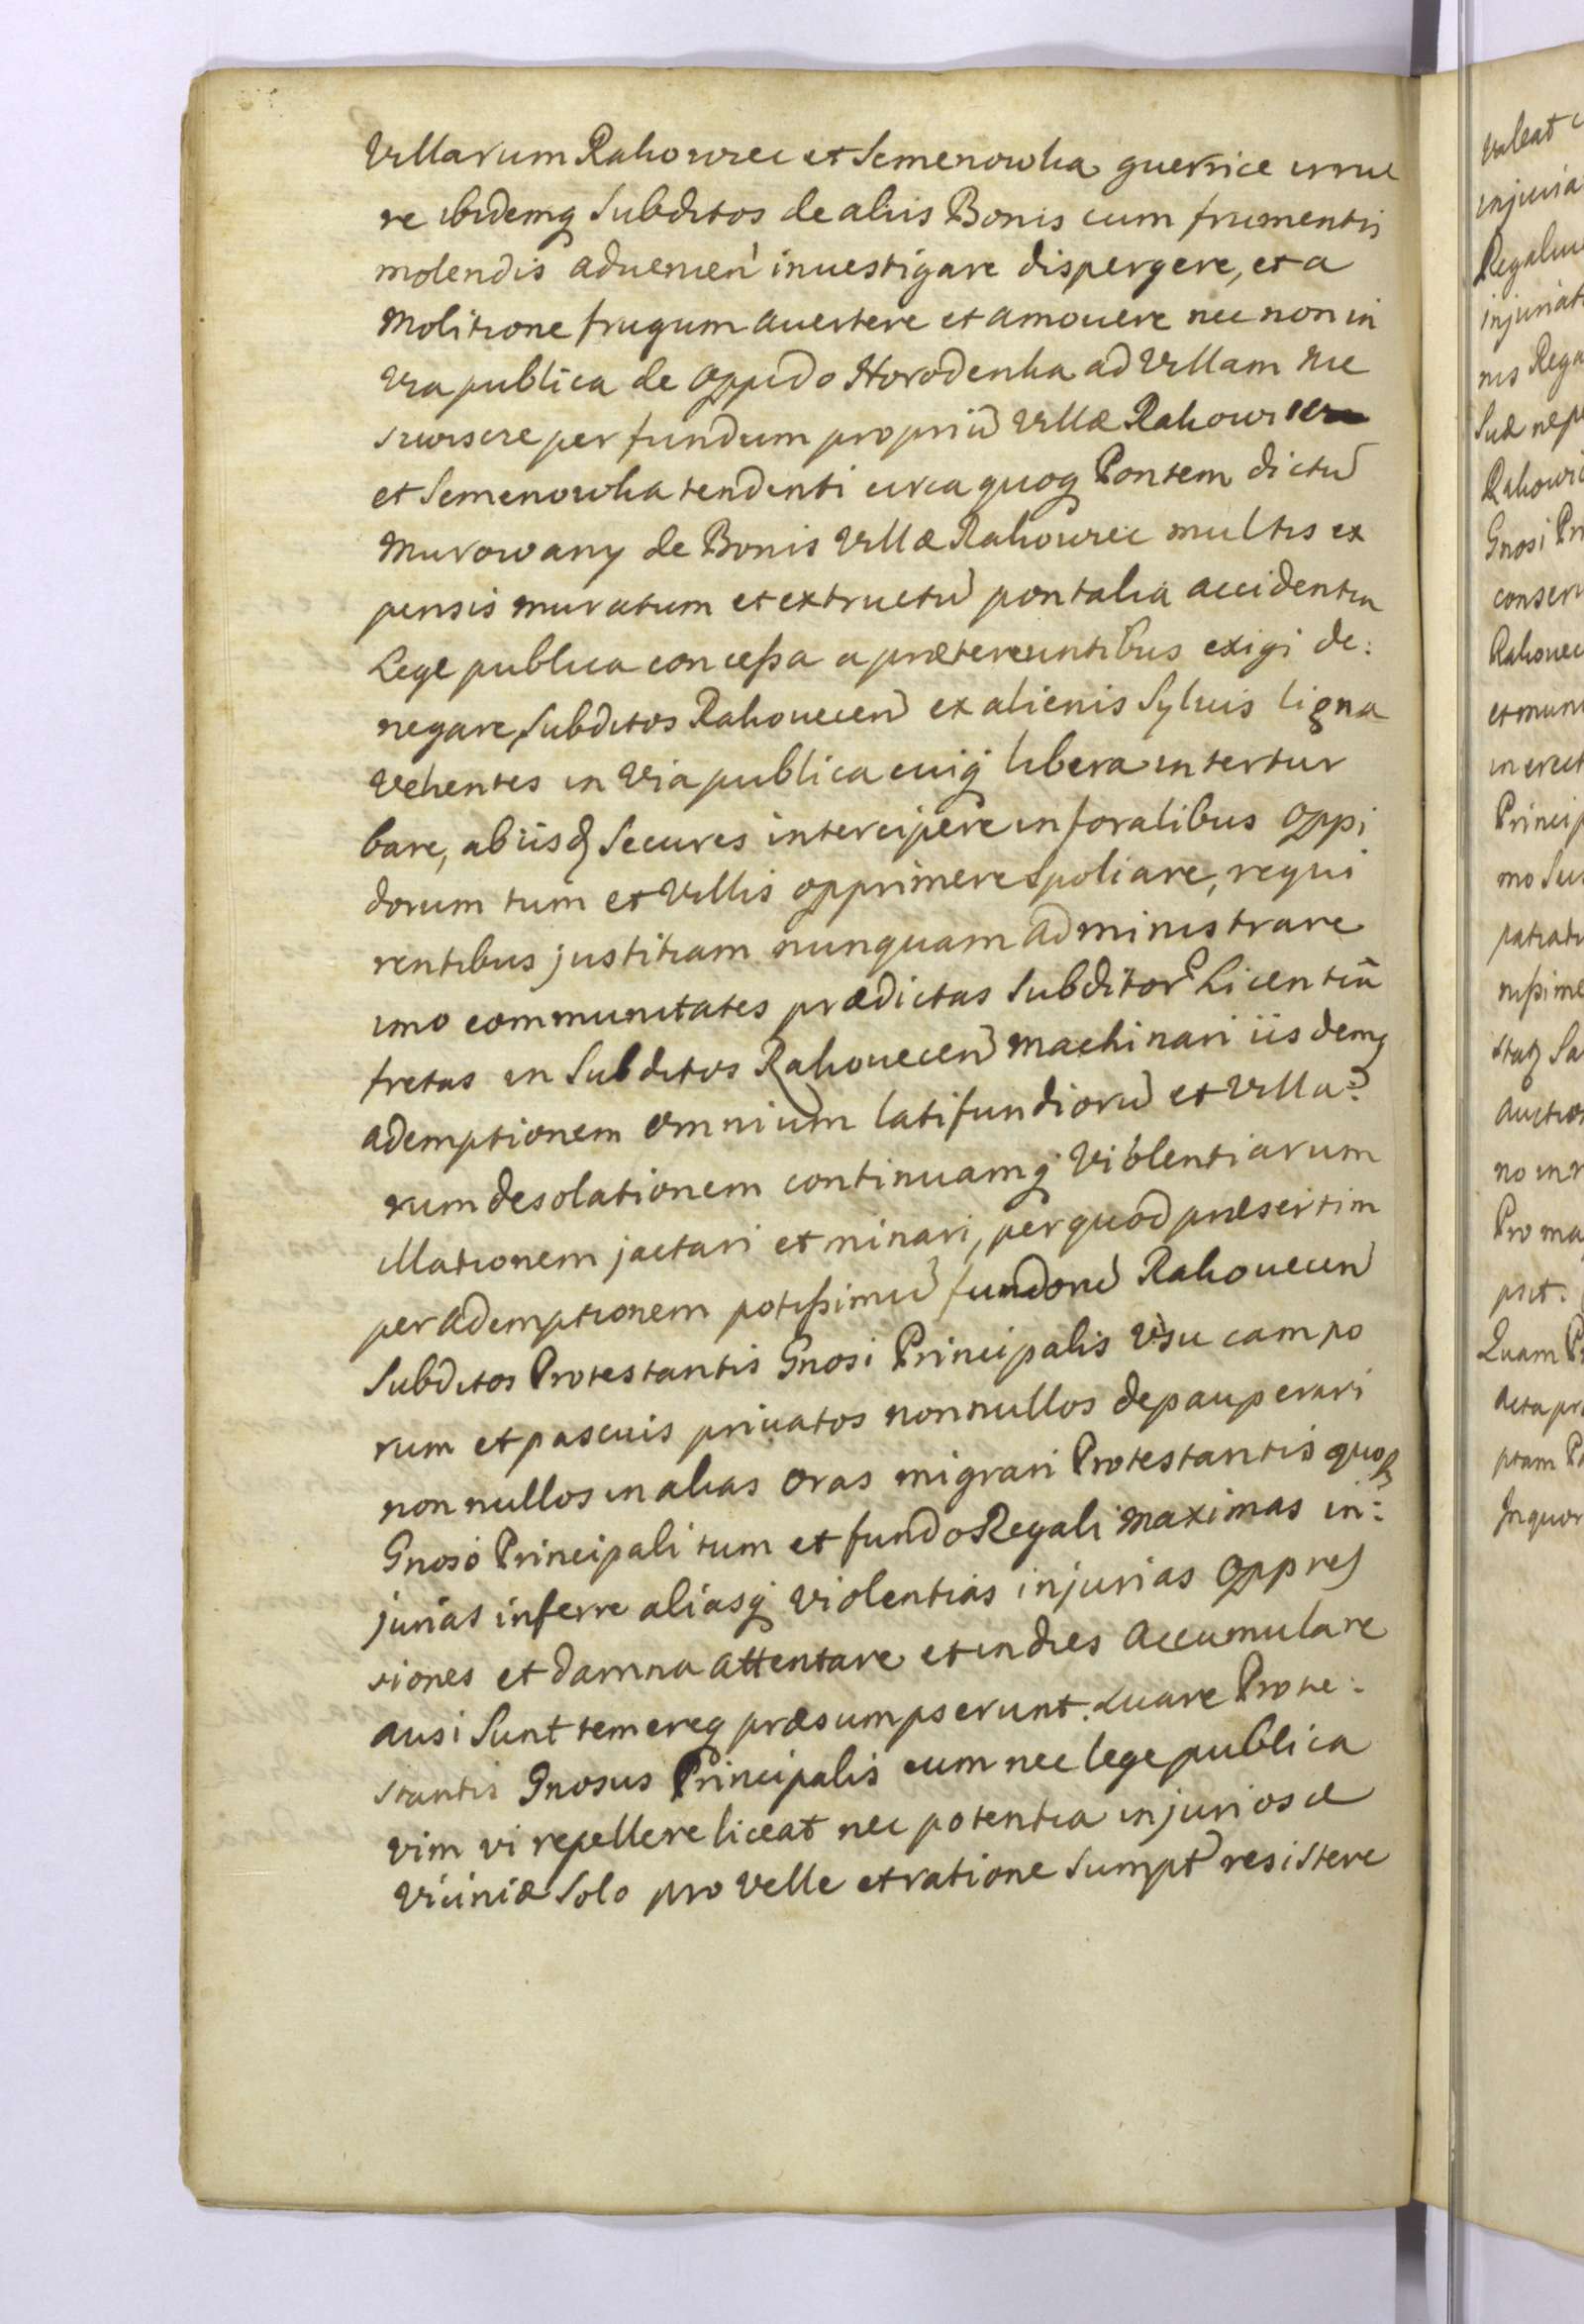 Villarum Rakowiec et Semenowka guerrice irrue
re ibidemq Subditos de aliis Bonis cum frumentis
molendis aduenien inuestigare dispergere, et a
Molitione frugum auertere et amouere nec non in
Via publica de Oppido Horodenka ad Villam Nie
zwiscze per fundum propriu Villæ Rakowiec
et Semenowka tendenti circa quoq Pontem dictu
Murowany de Bonis Villæ Rakowiec multis ex
pensis muratum et extructu pontalia accidentia
Lege publica concessa a prætereuntibus exigi de:
negare, Subditos Rakouecen ex alienis Syluis ligna
Vehentes in Via publica cuiq libera intertur
bare, ab iisq Secures intercipere in foralibus Oppi
dorum tum et Villis opprimere Spoliare, requi
rentibus justitiam nunquam administrare
imo communitates prædictas Subditor Licentia
fretas in Subditos Rakouecen machinari iisdemq
ademptionem omnium latifundioru et Villa:
rum desolationem continuamq Violentiarum
illationem jactari et minari, per quod præsertim
per ademptionem potissimu fundoru Rakouecen
Subditos Protestantis Gnosi Principalis Vsu campo
rum et pascuis priuatos nonnullos depauperari
nonnullos in alias oras migrari Protestantis quoq
Gnoso Principali tum et fundo Regali maximas in:
jurias inferre aliasq Violentias injurias oppres
siones et damna attentare et in dies accumulare
ausi Sunt temereq præsumpserunt. Quare Prote:
stantis Gnosus Principalis cum nec lege publica
vim vi repellere liceat nec potentia injuriosæ
Viciniæ Solo pro Velle et ratione Sumpt resistere
Principa
Regaliu
Rakowic
Gnosi Pr
conser
Rakouec
et mun
Princip
mo Sus
Pro ma
Quam P
Acta pr
ptam P
In quor